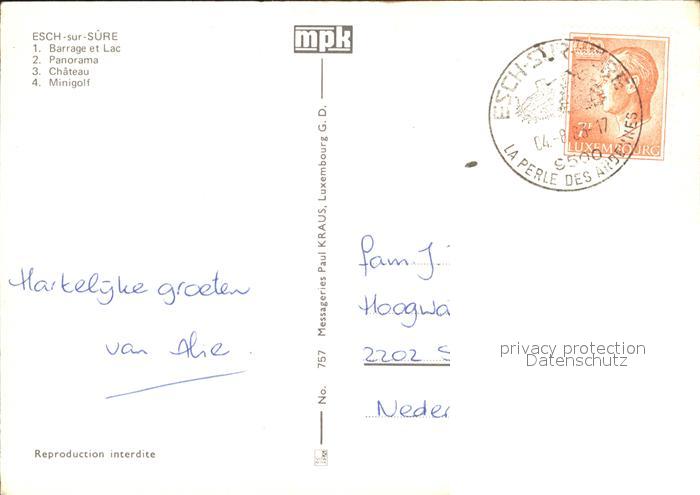 ESCH-sur-SÛRE
1. Barrage et Lac
2. Panorama
3. Château
4. Minigolf
mpk
ESCH-SUR-SURE
LUXEMBOURG
9500
LA PERLE DES ARDENNES
No. 757 Messageries Paul KRAUS, Luxembourg G. D.
Hartelijke groeten
van Alie.
fam. J
Hoogwa
2202 S
Neder
privacy protection
Datenschutz
Reproduction interdite